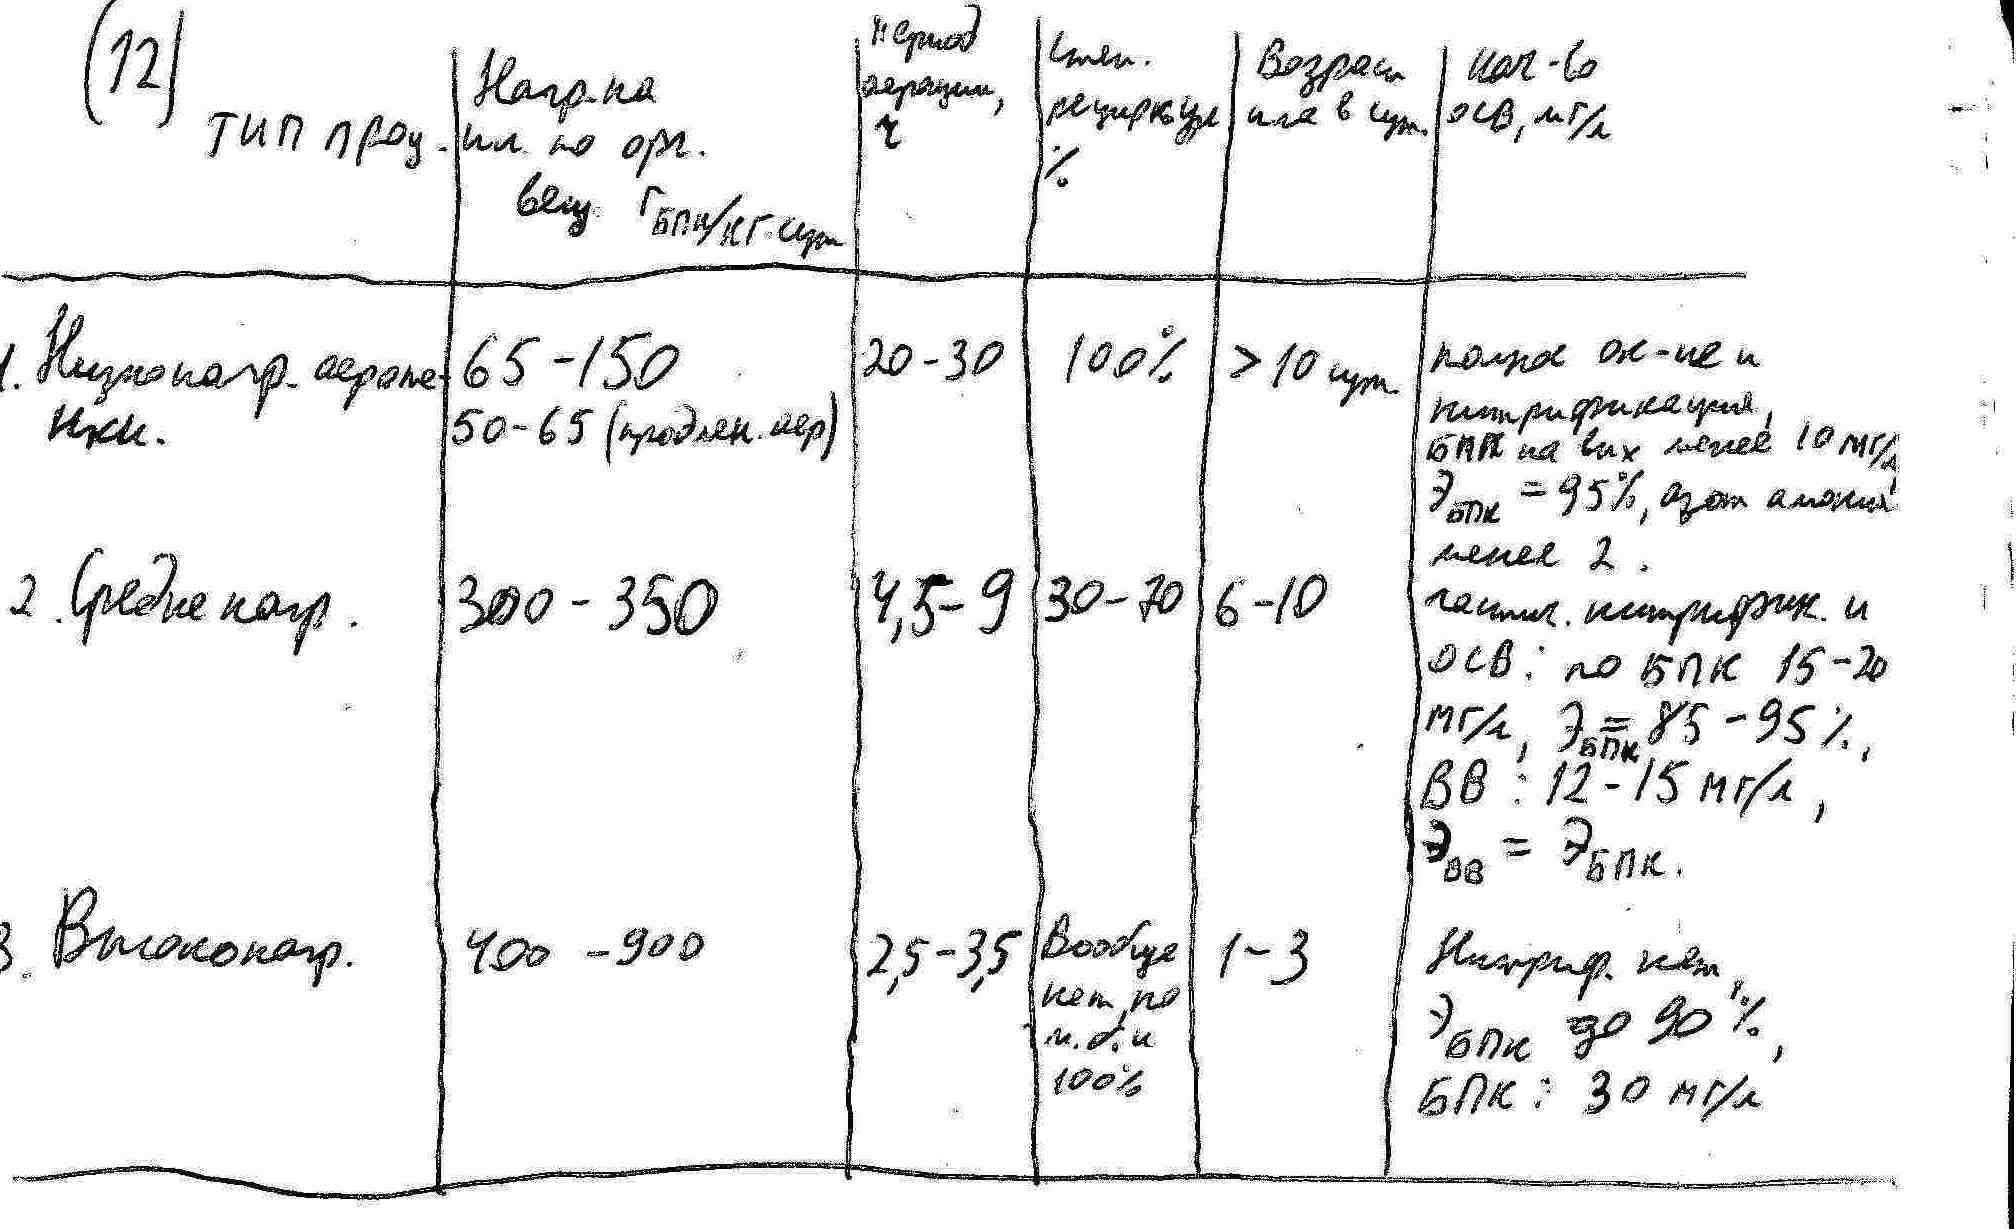 (12)
тип проц.
Нагр. на
ил. по орг.
вещ. г БПК/кг·сут
период
аерации,
ч
степ.
рециркул
%
Возраст
ила в сут.
кач-во
ОСВ, мг/л
1. Низконагр. аероте-
нки.
65-150
50-65 (продлен. аер)
20-30
100%
>10 сут.
полное ок-ие и
нитрификация,
БПК на вых менее 10 мг/л
Э БПК = 95%, азот амония
менее 2.
2. Средне нагр.
300-350
4,5-9
30-70
6-10
частич. нитрифик. и
ОСВ: по БПК 15-20
мг/л, Э БПК = 85-95%,
ВВ: 12-15 мг/л,
Э ВВ = Э БПК.
3. Высоконагр.
400-900
2,5-3,5
Вообще
нет, но
м.б. и
100%
1-3
Нитриф. нет,
Э БПК до 90%,
БПК: 30 мг/л